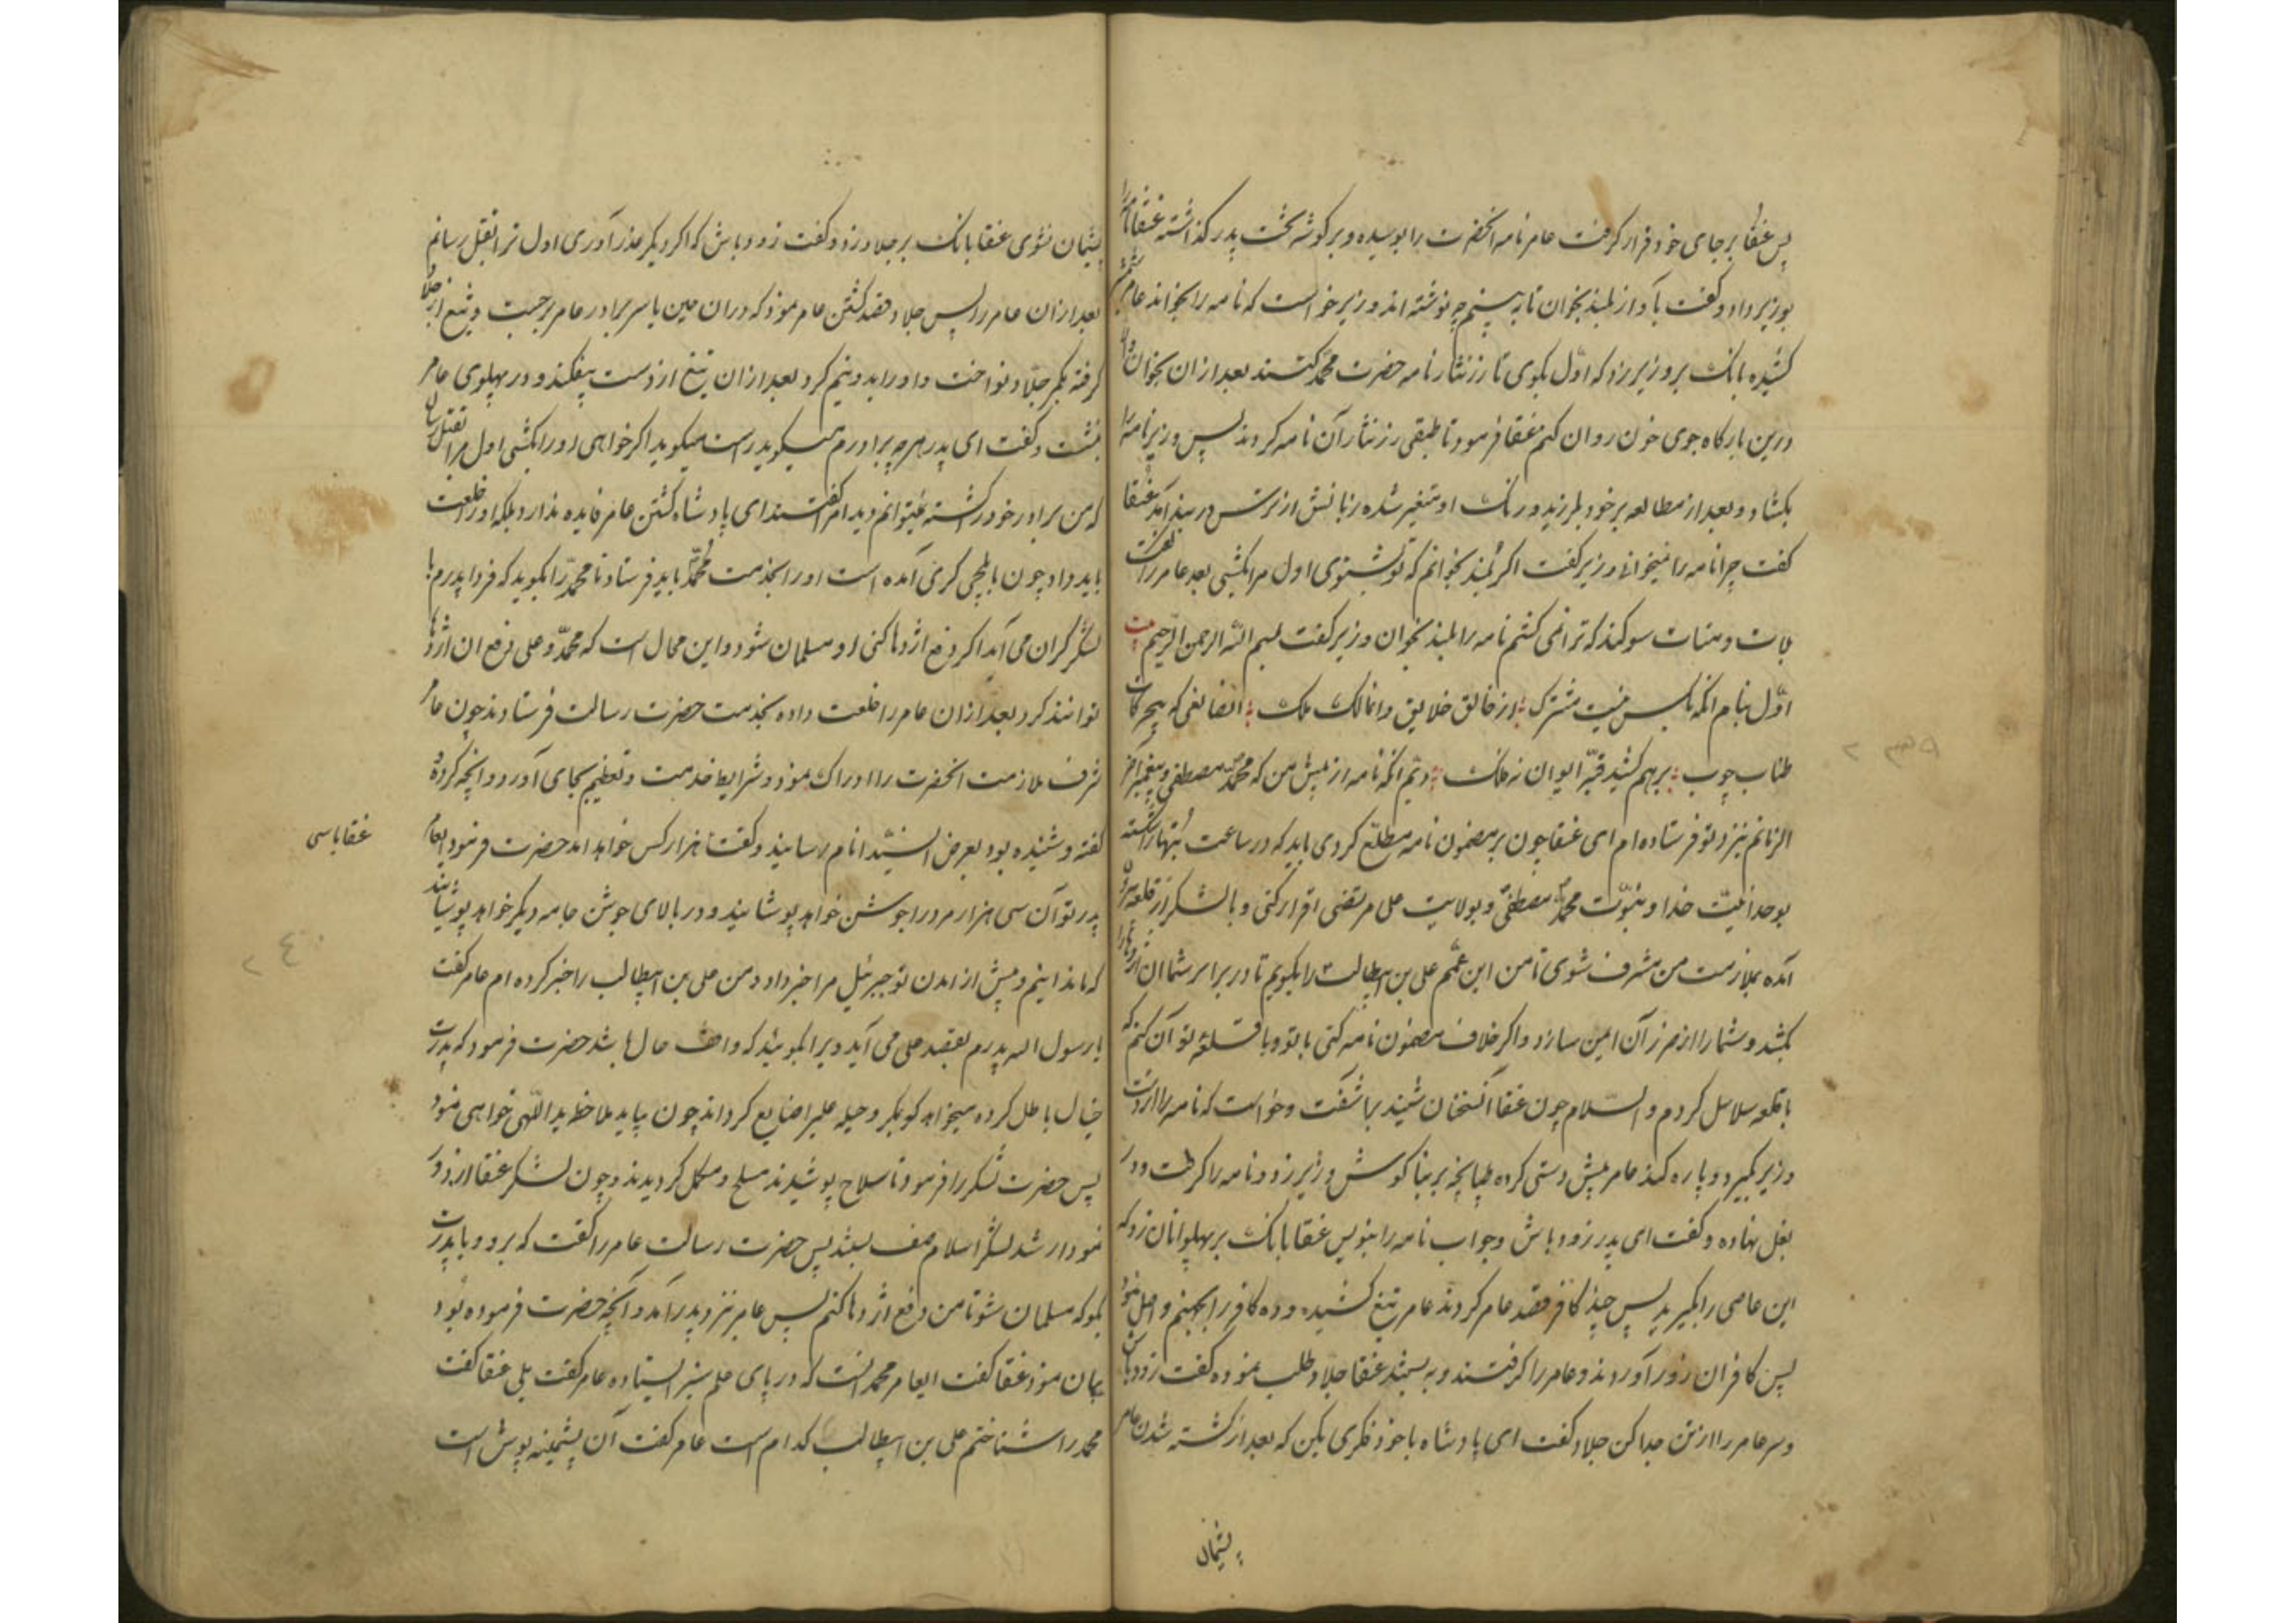 پس غنقا بر جای خود قرار کرفت عامر نامه انحضرت را بوسیده و بر کوشه تخت پدر کذاشته غنقا نامه را
بوزیر داد و کفت بآواز بلند بخوان تا به بینم چه نوشته اند وزیر خواست که نامه را بخواند عامر
کشیده بانک بر وزیر زد که اول بکوی تا زر نثار نامه حضرت محمد کنند بعد ازان بخوان والا
درین بارکاه جوی خون روان کنم غنقا فرمود تا طبقی زر نثار آن نامه کردند پس وزیر نامه را
بکشاد و بعد از مطالعه بر خود بلرزید و رنک او متغیر شده زبانش از ترس در بند آمد غنقا
کفت چرا نامه را نمیخوانی وزیر کفت اکر بلند بخوانم که تو بشنوی اول مرا بکشی بعد عامر را کفت
بلات و منات سوکند که ترا نمی کشم نامه را بلند بخوان وزیر کفت بسم الله الرحمن الرحیم بیت
اول بنام انکه بکس نیست مشترک از خالق خلایق وانا لک ملک انصانعی که بیچ
طناب چوب برهم کشید قبه ایوان نه فلک دیم انکه نامه از پیش من که محمد مصطفی و پیغمبر آخر
الزمانم بنزد تو فرستاده ام ای غنقا چون بر مضمون نامه مطلع کردی باید که در ساعت بتها را شکسته
بوحدانیت خدا و بنبوت محمد مصطفی و بولایت علی مرتضی اقرار کنی و با لشکر از قلعه
آمده بملازمت من مشرف شوی تا من ابن عمم علی بن ابیطالب را بکویم تا در برابر شما ان اژدها را
بکشد و شما را از ضرر آن ایمن سازد و اکر خلاف مضمون نامه کنی با تو و با قلعه تو آن کنم که
با قلعه سلاسل کردم والسلام چون غنقا انسخنان شنید براشفت و خواست که نامه را از دست
وزیر بکیرد و پاره کند عامر پیش دستی کرده طپانچه بر بنا کوش وزیر زد و نامه را کرفت و در
بغل نهاده و کفت ای پدر زود باش و جواب نامه را بنویس غنقا بانک بر پهلوانان زد که
این عاصی را بکیرید پس چند کافر قصد عامر کردند عامر تیغ کشیده و ده کافر را بجهنم واصل نمود
پس کافران زور آوردند و عامر را کرفتند و به بستند غنقا جلاد طلب نموده کفت زود باش
و سر عامر را از تن جدا کن جلاد کفت ای پادشاه با خود فکری بکن که بعد از کشته شدن عامر
پشیمان
پشیمان نشوی غنقا بانک بر جلاد زد و کفت زود باش که اکر دیکر عذر آوری اول ترا بقتل رسانم
بعد ازان عامر را پس جلاد قصد کشتن عامر نمود که دران حین یاسر برادر عامر برجست و تیغ از جلاد
کرفته بکمر جلاد نواخت و او را بدو نیم کرد بعد ازان تیغ از دست بیفکند و در پهلوی عامر
بنشست و کفت ای پدر هر چه برادرم میکوید راست میکوید اکر خواهی او را بکشی اول مرا بقتل رسان
که من برادر خود را کشته نمیتوانم دید امرا کفتند ای پادشاه کشتن عامر فایده ندارد بلکه او را خلعت
باید داد چون بایلچی کری آمده است او را بخدمت محمد باید فرستاد تا محمد را بکوید که فردا پدرم با
لشکر کران می آید اکر دفع اژدها کنی او مسلمان شود و این محال است که محمد و علی دفع ان اژدها
توانند کرد بعد ازان عامر را خلعت داده بخدمت حضرت رسالت فرستادند چون عامر
شرف ملازمت انحضرت را ادراک نمود و شرایط خدمت و تعظیم بجای آورد و انچه کرده و
کفته و شنیده بود بعرض السید انام رسانید و کفت با هزار کس خواهد امد حضرت فرمود ایعامر
غنقا با سی
پدر تو آن سی هزار مرد را جوشن خواهد پوشانید و در بالای جوشن جامه دیکر خواهد پوشانید
که ما ندانیم و پیش از امدن تو جبرئیل مرا خبر داد و من علی بن ابیطالب را خبر کرده ام عامر کفت
یا رسول الله پدرم بقصد علی می آید ویرا بکوئید که واقف حال باشد حضرت فرمود که پدرت
خیال باطل کرده میخواهد که بمکر و حیله علی را ضایع کرداند چون بیاید ملاحظه ید اللهی خواهی نمود
پس حضرت لشکر را فرمود تا سلاح پوشیدند مسلح و مکمل کردیدند و چون لشکر غنقا از دور
نمودار شد لشکر اسلام صف بستند پس حضرت رسالت عامر را کفت که برو و با پدرت
بکو که مسلمان شو تا من دفع اژدها کنم پس عامر نزد پدر آمد و آنچه حضرت فرموده بود
بیان نمود غنقا کفت ایعامر محمد انست که در پای علم سبز ایستاده عامر کفت بلی غنقا کفت
محمد را شناختم علی بن ابیطالب کدام است عامر کفت آن پشمینه پوش است